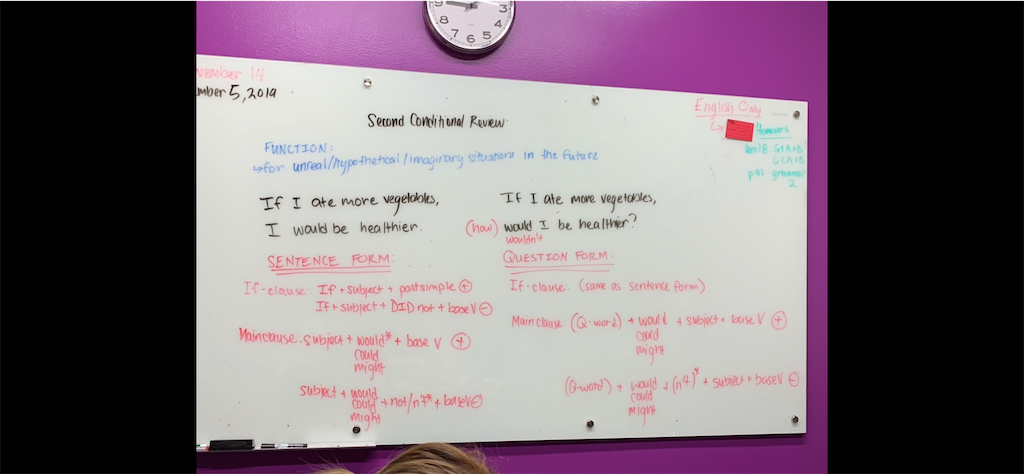 14
5, 2019
English Only
Homework
Second Conditional Review
FUNCTION:
↳for unreal/hypothetical/imaginary situations in the future
If I ate more vegetables,
I would be healthier.
If I ate more vegetables,
(how) would I be healthier?
wouldn't
SENTENCE FORM:
If-clause: If + subject + past simple +
If + subject + DID not + base V -
Main clause: subject + would* + base V +
could
might
subject + would
could + not/n't* + base V -
might
QUESTION FORM:
If-clause: (same as sentence form)
Main clause: (Q-word) + would + subject + base V +
could
might
(Q-word) + would + (n't)* + subject + base V -
could
might
3
4
5
6
7
8
9